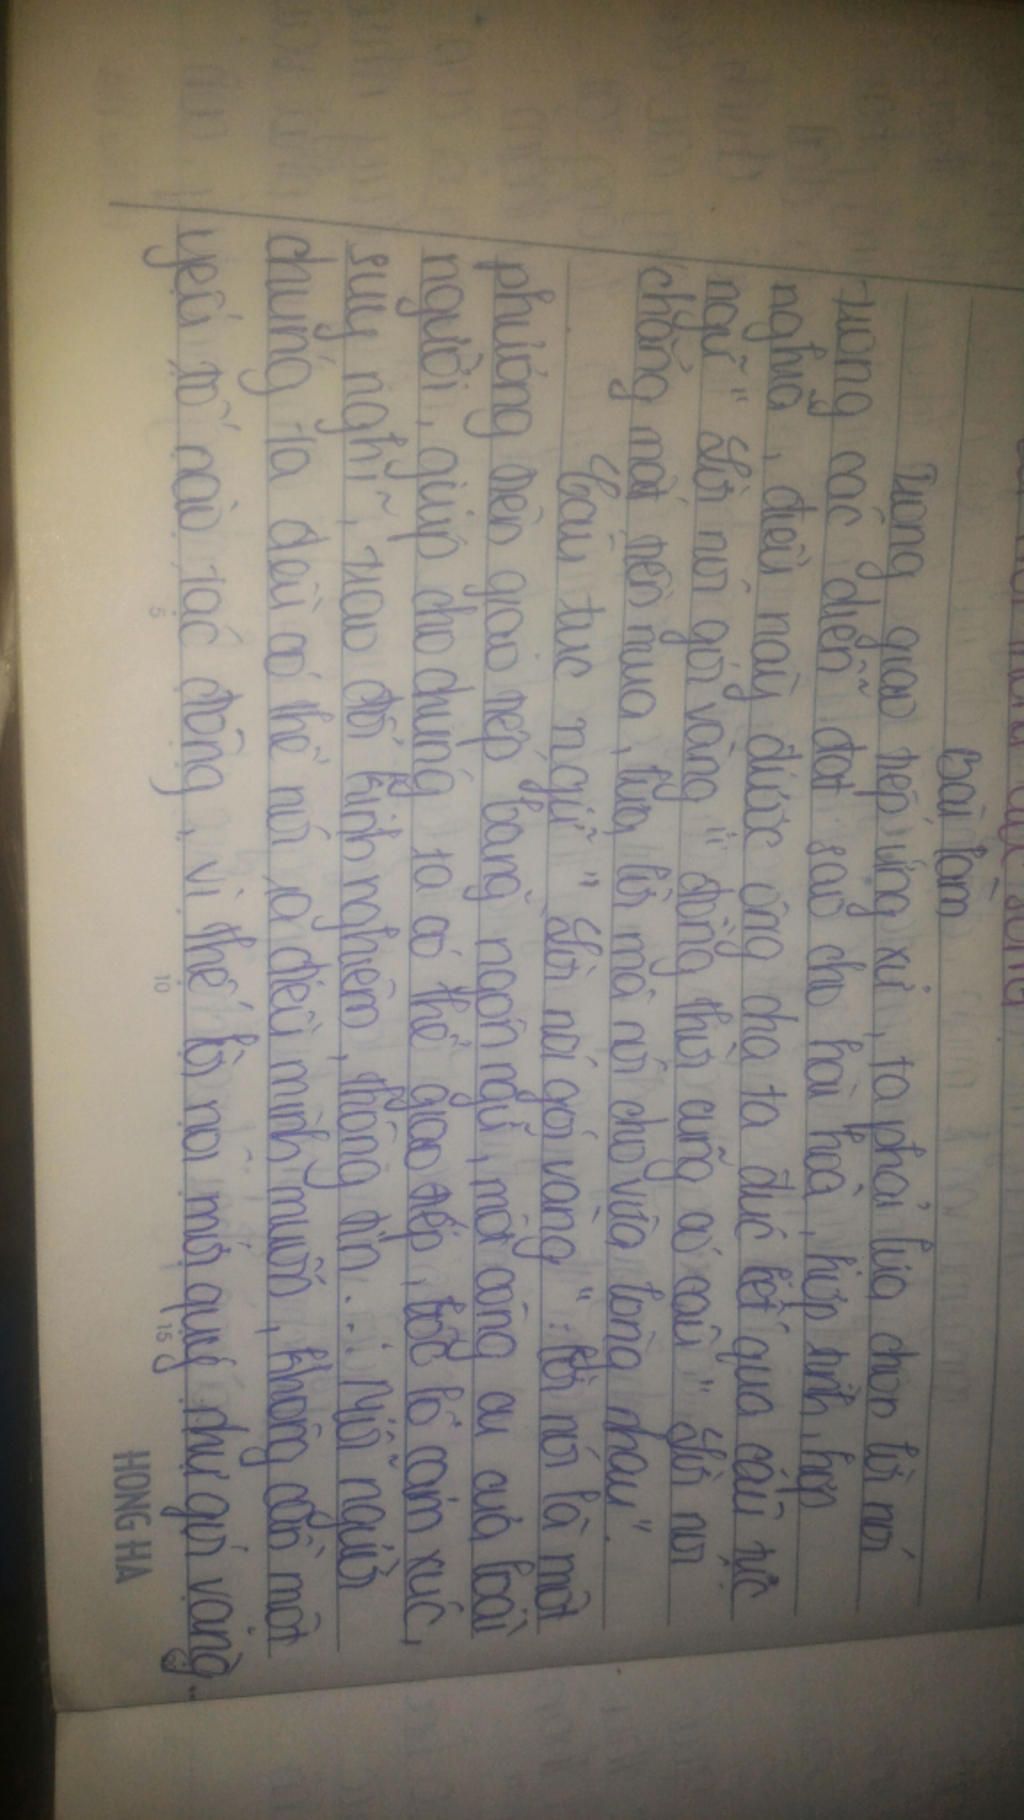 Bài làm
Trong giao tiếp ứng xử, ta phải lựa chọn lời nói
trong các diễn đạt sao cho hài hoà, hợp tình, hợp
nghĩa, điều này được ông cha ta đúc kết qua câu tục
ngữ "Lời nói gói vàng" đồng thời cũng có câu "Lời nói
chẳng mất tiền mua, lựa lời mà nói cho vừa lòng nhau".
Câu tục ngữ "Lời nói gói vàng": lời nói là một
phương tiện giao tiếp bằng ngôn ngữ, một công cụ của loài
người, giúp cho chúng ta có thể giao tiếp, bộc lộ cảm xúc,
suy nghĩ, trao đổi kinh nghiệm, thông tin... Mỗi người
chúng ta đều có thể nói ra điều mình muốn, không cần một
yếu tố nào tác động, vì thế lời nói mới quý như gói vàng.
5 10 15
HONG HA